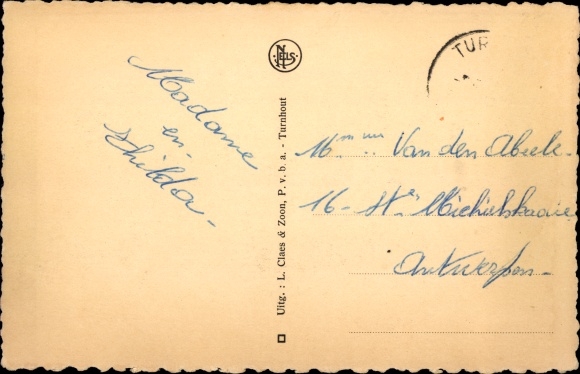 Madame
en -
Thilda -
NELS
Uitg. : L. Claes & Zoon, P. v. b. a. - Turnhout
TUR
Van den Abeele -
16 - Ste Michielskaaie
Antwerpen -